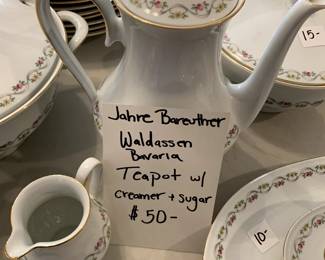 15-
Jahre Bareuther
Waldassen
Bavaria
Teapot w/
creamer + sugar
$50-
10-